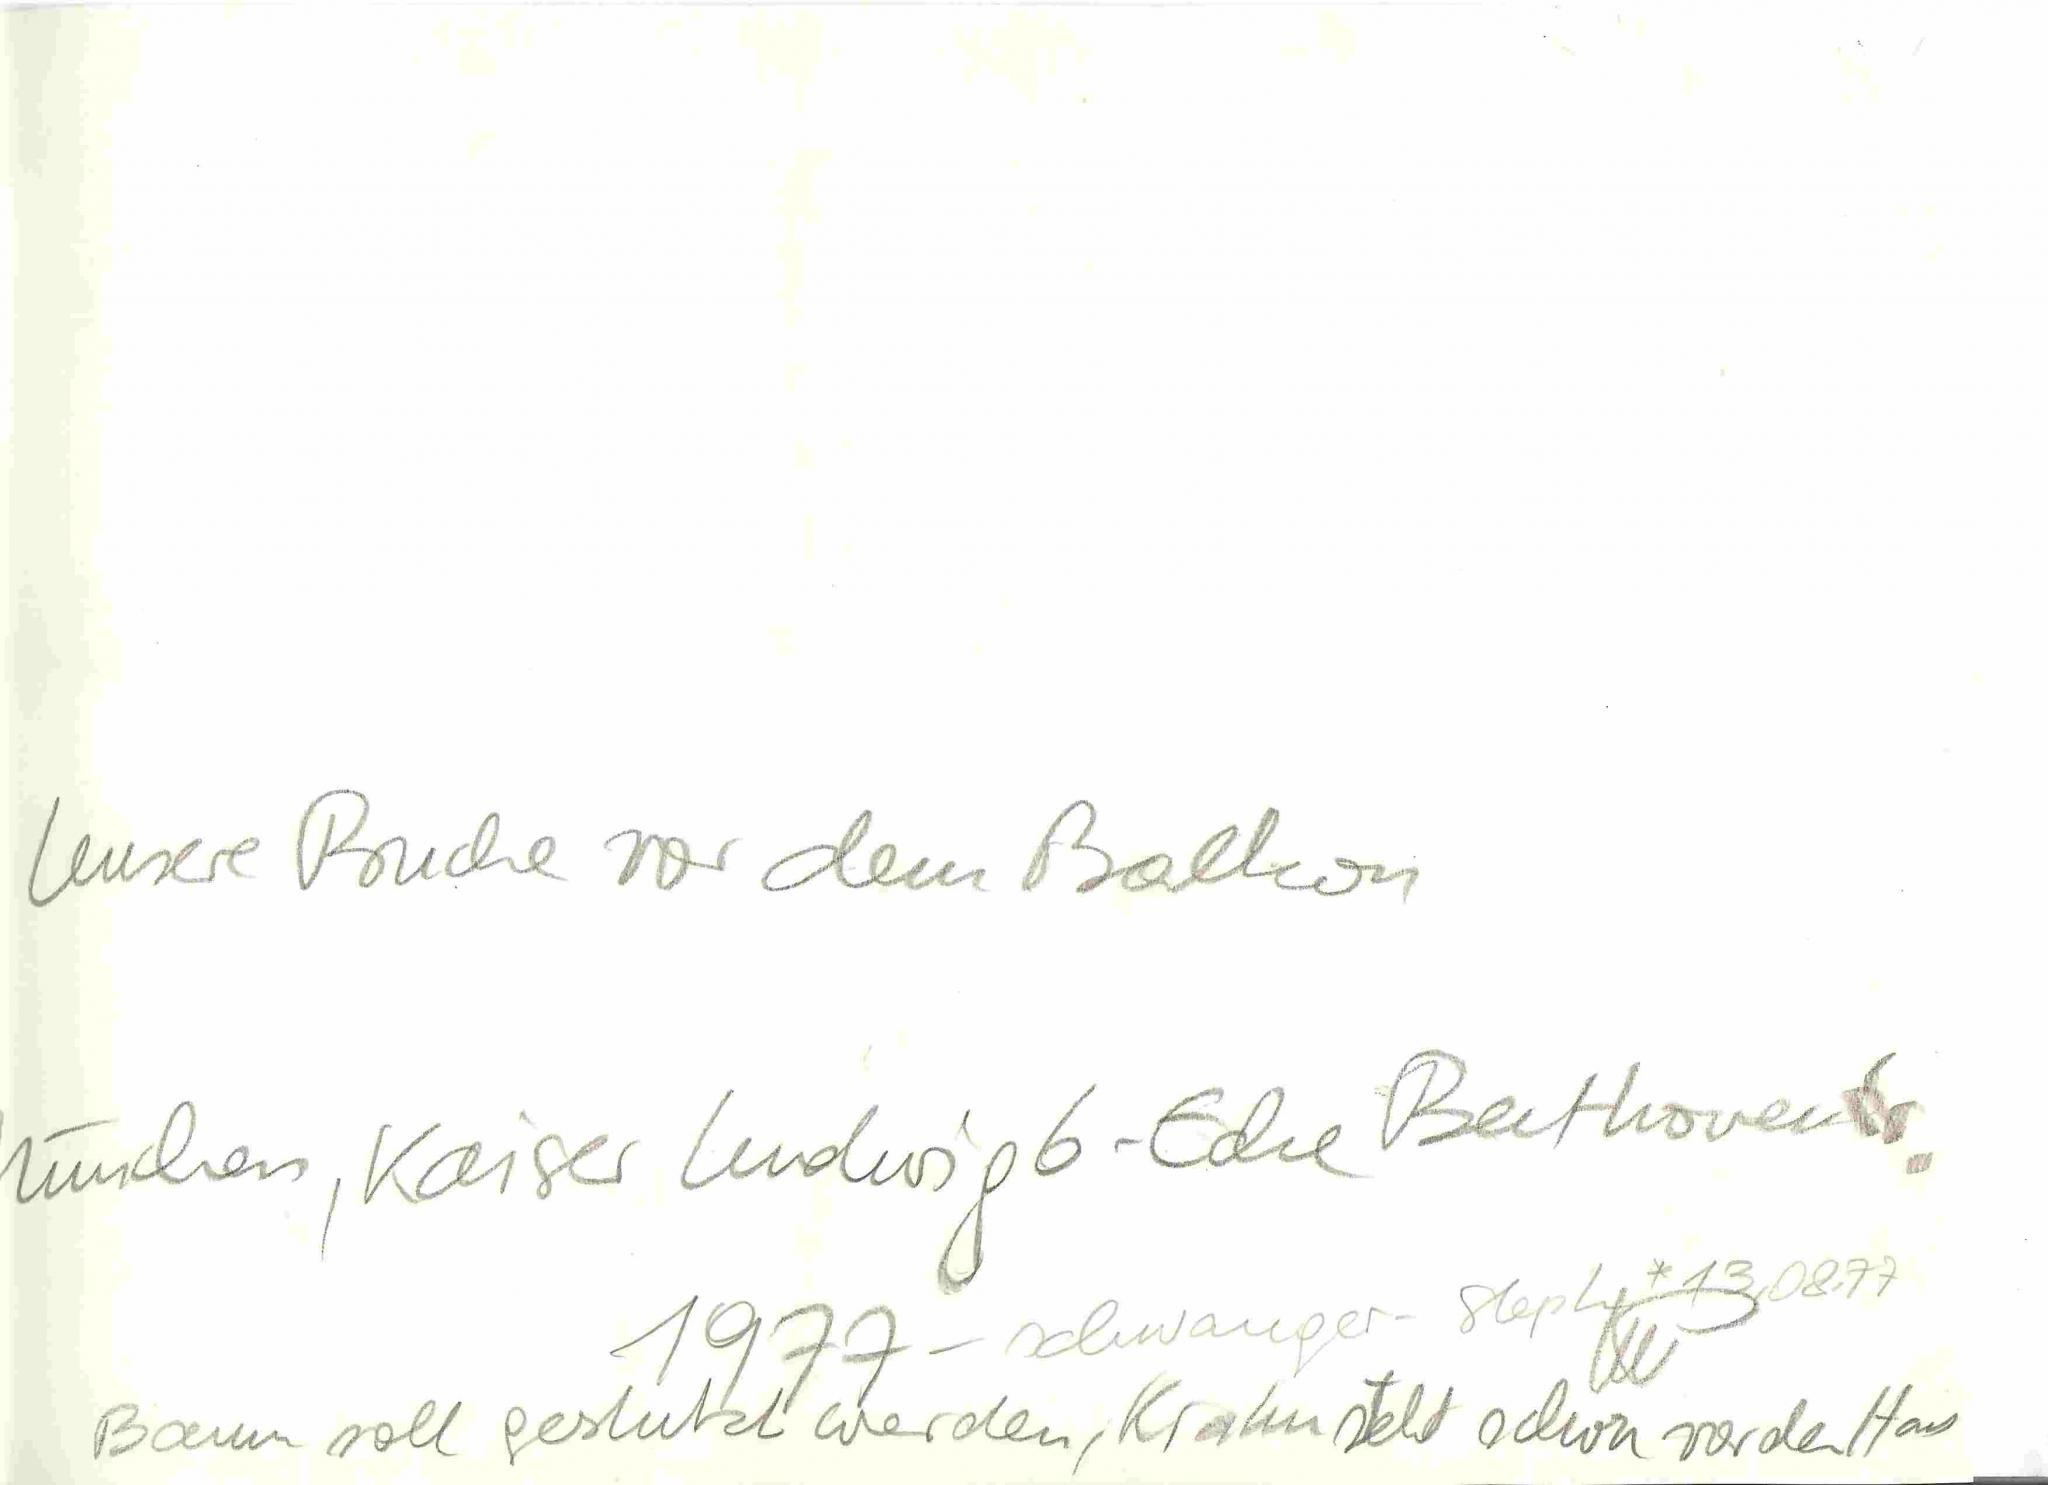 Unsere Buche vor dem Balkon
München, Kaiser Ludwig 6-Ecke Beethovenstr.
1977 - schwanger - Steph *13.08.77
Baum soll gestutzt werden, Krahn steht schon vor dem Haus